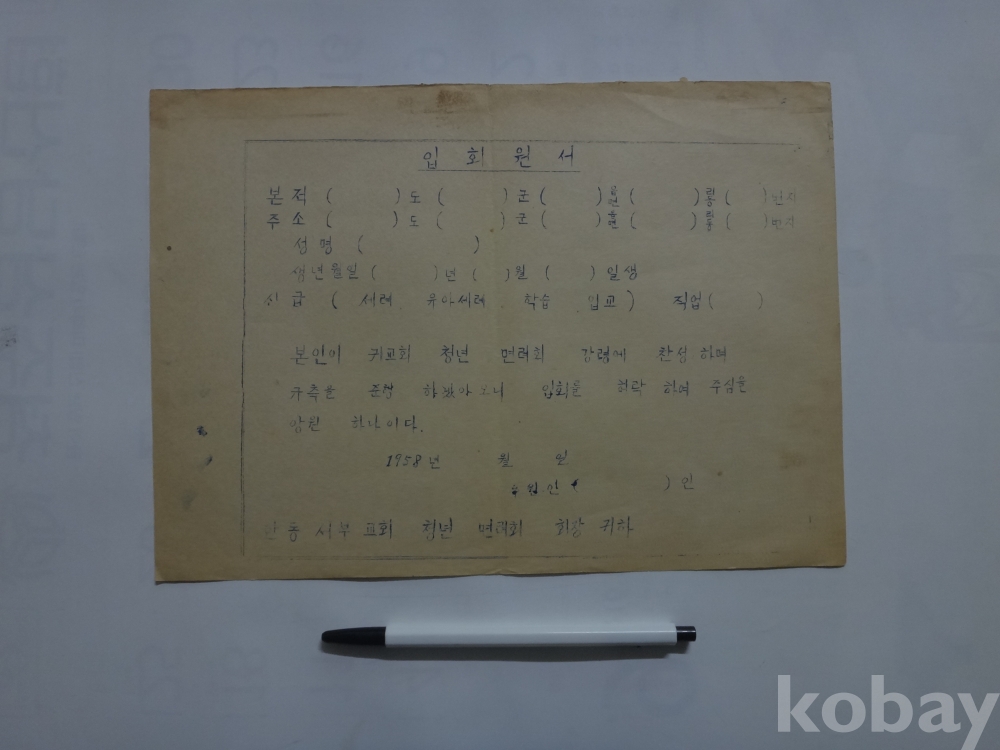 입 회 원 서
본 적 ( ) 도 ( ) 군 ( ) 읍면 ( ) 리동 ( ) 번지
주 소 ( ) 도 ( ) 군 ( ) 읍면 ( ) 리동 ( ) 번지
성 명 ( )
생년월일 ( ) 년 ( ) 월 ( ) 일생
신 급 ( 세례 유아세례 학습 입교 ) 직업 ( )
본인이 귀교회 청년 면려회 강령에 찬성 하며
규측을 준행 하겠아오니 입회를 허락 하여 주심을
앙원 하나이다.
1958년 월 일
원인 ( ) 인
안동 서부 교회 청년 면려회 회장 귀하
kobay